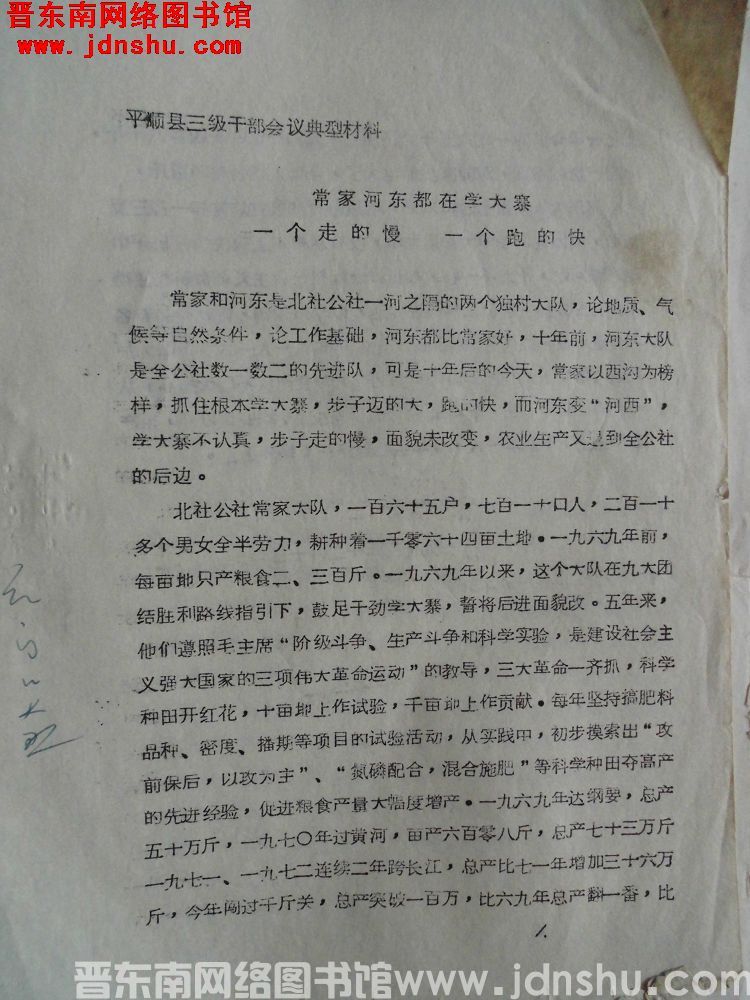 晋东南网络图书馆
www.jdnshu.com
平顺县三级干部会议典型材料
常家河东都在学大寨
一个走的慢 一个跑的快
常家和河东是北社公社一河之隔的两个独村大队，论地质、气
候等自然条件，论工作基础，河东都比常家好，十年前，河东大队
是全公社数一数二的先进队，可是十年后的今天，常家以西沟为榜
样，抓住根本学大寨，步子迈的大，跑的快，而河东变“河西”，
学大寨不认真，步子走的慢，面貌未改变，农业生产又退到全公社
的后边。
北社公社常家大队，一百六十五户，七百一十口人，二百一十
多个男女全半劳力，耕种着一千零六十四亩土地。一九六九年前，
每亩地只产粮食二、三百斤。一九六九年以来，这个大队在九大团
结胜利路线指引下，鼓足干劲学大寨，誓将后进面貌改。五年来，
他们遵照毛主席“阶级斗争、生产斗争和科学实验，是建设社会主
义强大国家的三项伟大革命运动”的教导，三大革命一齐抓，科学
种田开红花，十亩地上作试验，千亩地上作贡献。每年坚持搞肥料
品种、密度、播期等项目的试验活动，从实践中，初步摸索出“攻
前保后，以攻为主”、“氮磷配合，混合施肥”等科学种田夺高产
的先进经验，促进粮食产量大幅度增产。一九六九年达纲要，总产
五十万斤，一九七〇年过黄河，亩产六百零八斤，总产七十三万斤
一九七一、一九七二连续二年跨长江，总产比七一年增加三十六万
斤，今年闯过千斤关，总产突破一百万，比六九年总产翻一番，比
1.
晋东南网络图书馆www.jdnshu.com